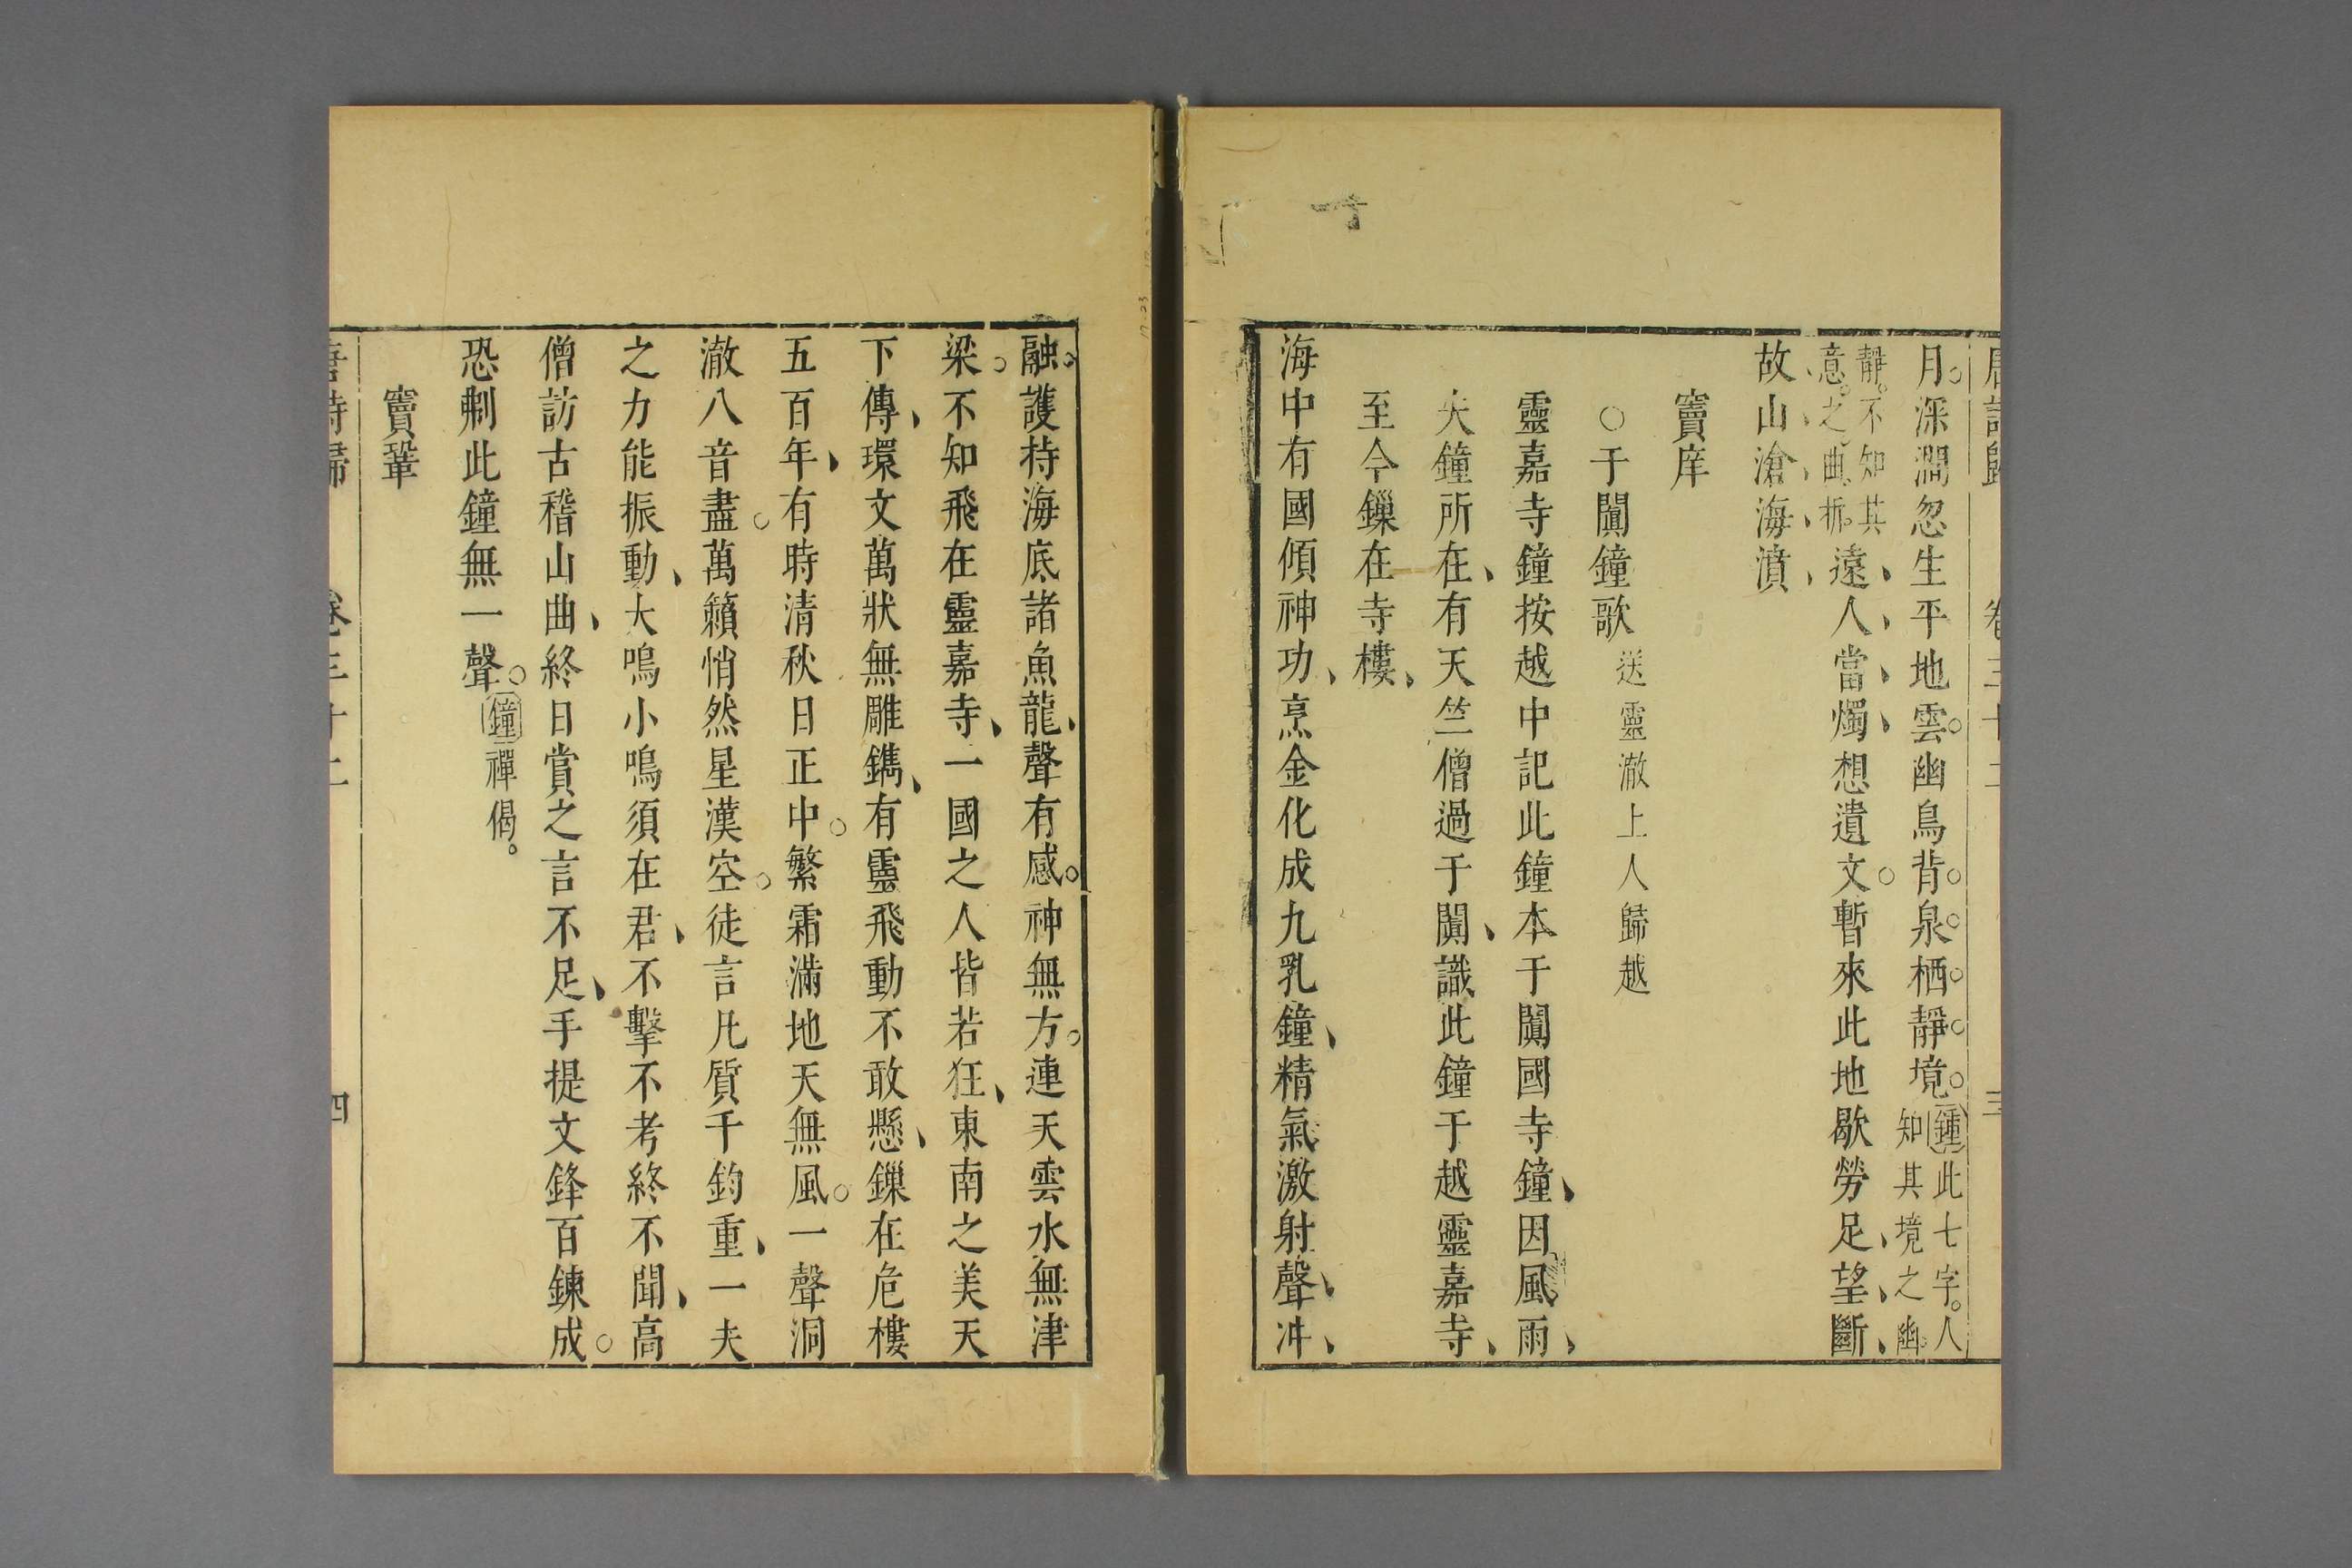 唐詩歸 卷三十二 三
月深澗忽生平地雲幽鳥背泉栖靜境鍾此七字人
知其境之幽
靜不知其
意之曲折遠人當燭想遺文暫來此地歇勞足望斷
故山滄海濆
竇庠
○于闐鐘歌送靈澈上人歸越
靈嘉寺鐘按越中記此鐘本于闐國寺鐘因風雨
失鐘所在有天竺僧過于闐識此鐘于越靈嘉寺
至今鏁在寺樓
海中有國傾神功烹金化成九乳鐘精氣激射聲冲
融護持海底諸魚龍聲有感神無方連天雲水無津
梁不知飛在靈嘉寺一國之人皆若狂東南之美天
下傳環文萬狀無雕鐫有靈飛動不敢懸鏁在危樓
五百年有時清秋日正中繁霜滿地天無風一聲洞
澈八音盡萬籟悄然星漢空徒言凡質千鈞重一夫
之力能振動大鳴小鳴須在君不擊不考終不聞高
僧訪古稽山曲終日賞之言不足手提文鋒百鍊成
恐剸此鐘無一聲鐘禪偈。
竇鞏
唐詩歸 卷三十二 四